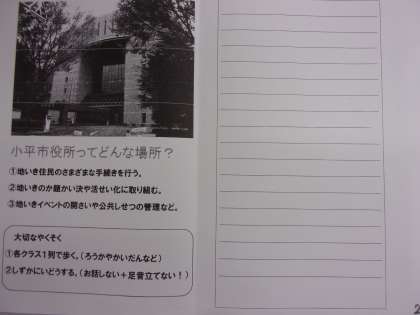 小平市役所ってどんな場所？
①地いき住民のさまざまな手続きを行う。
②地いきのか題かい決や活せい化に取り組む。
③地いきイベントの開さいや公共しせつの管理など。
大切なやくそく
①各クラス１列で歩く。（ろうかやかいだんなど）
②しずかにいどうする。（お話しない＋足音立てない！）
2